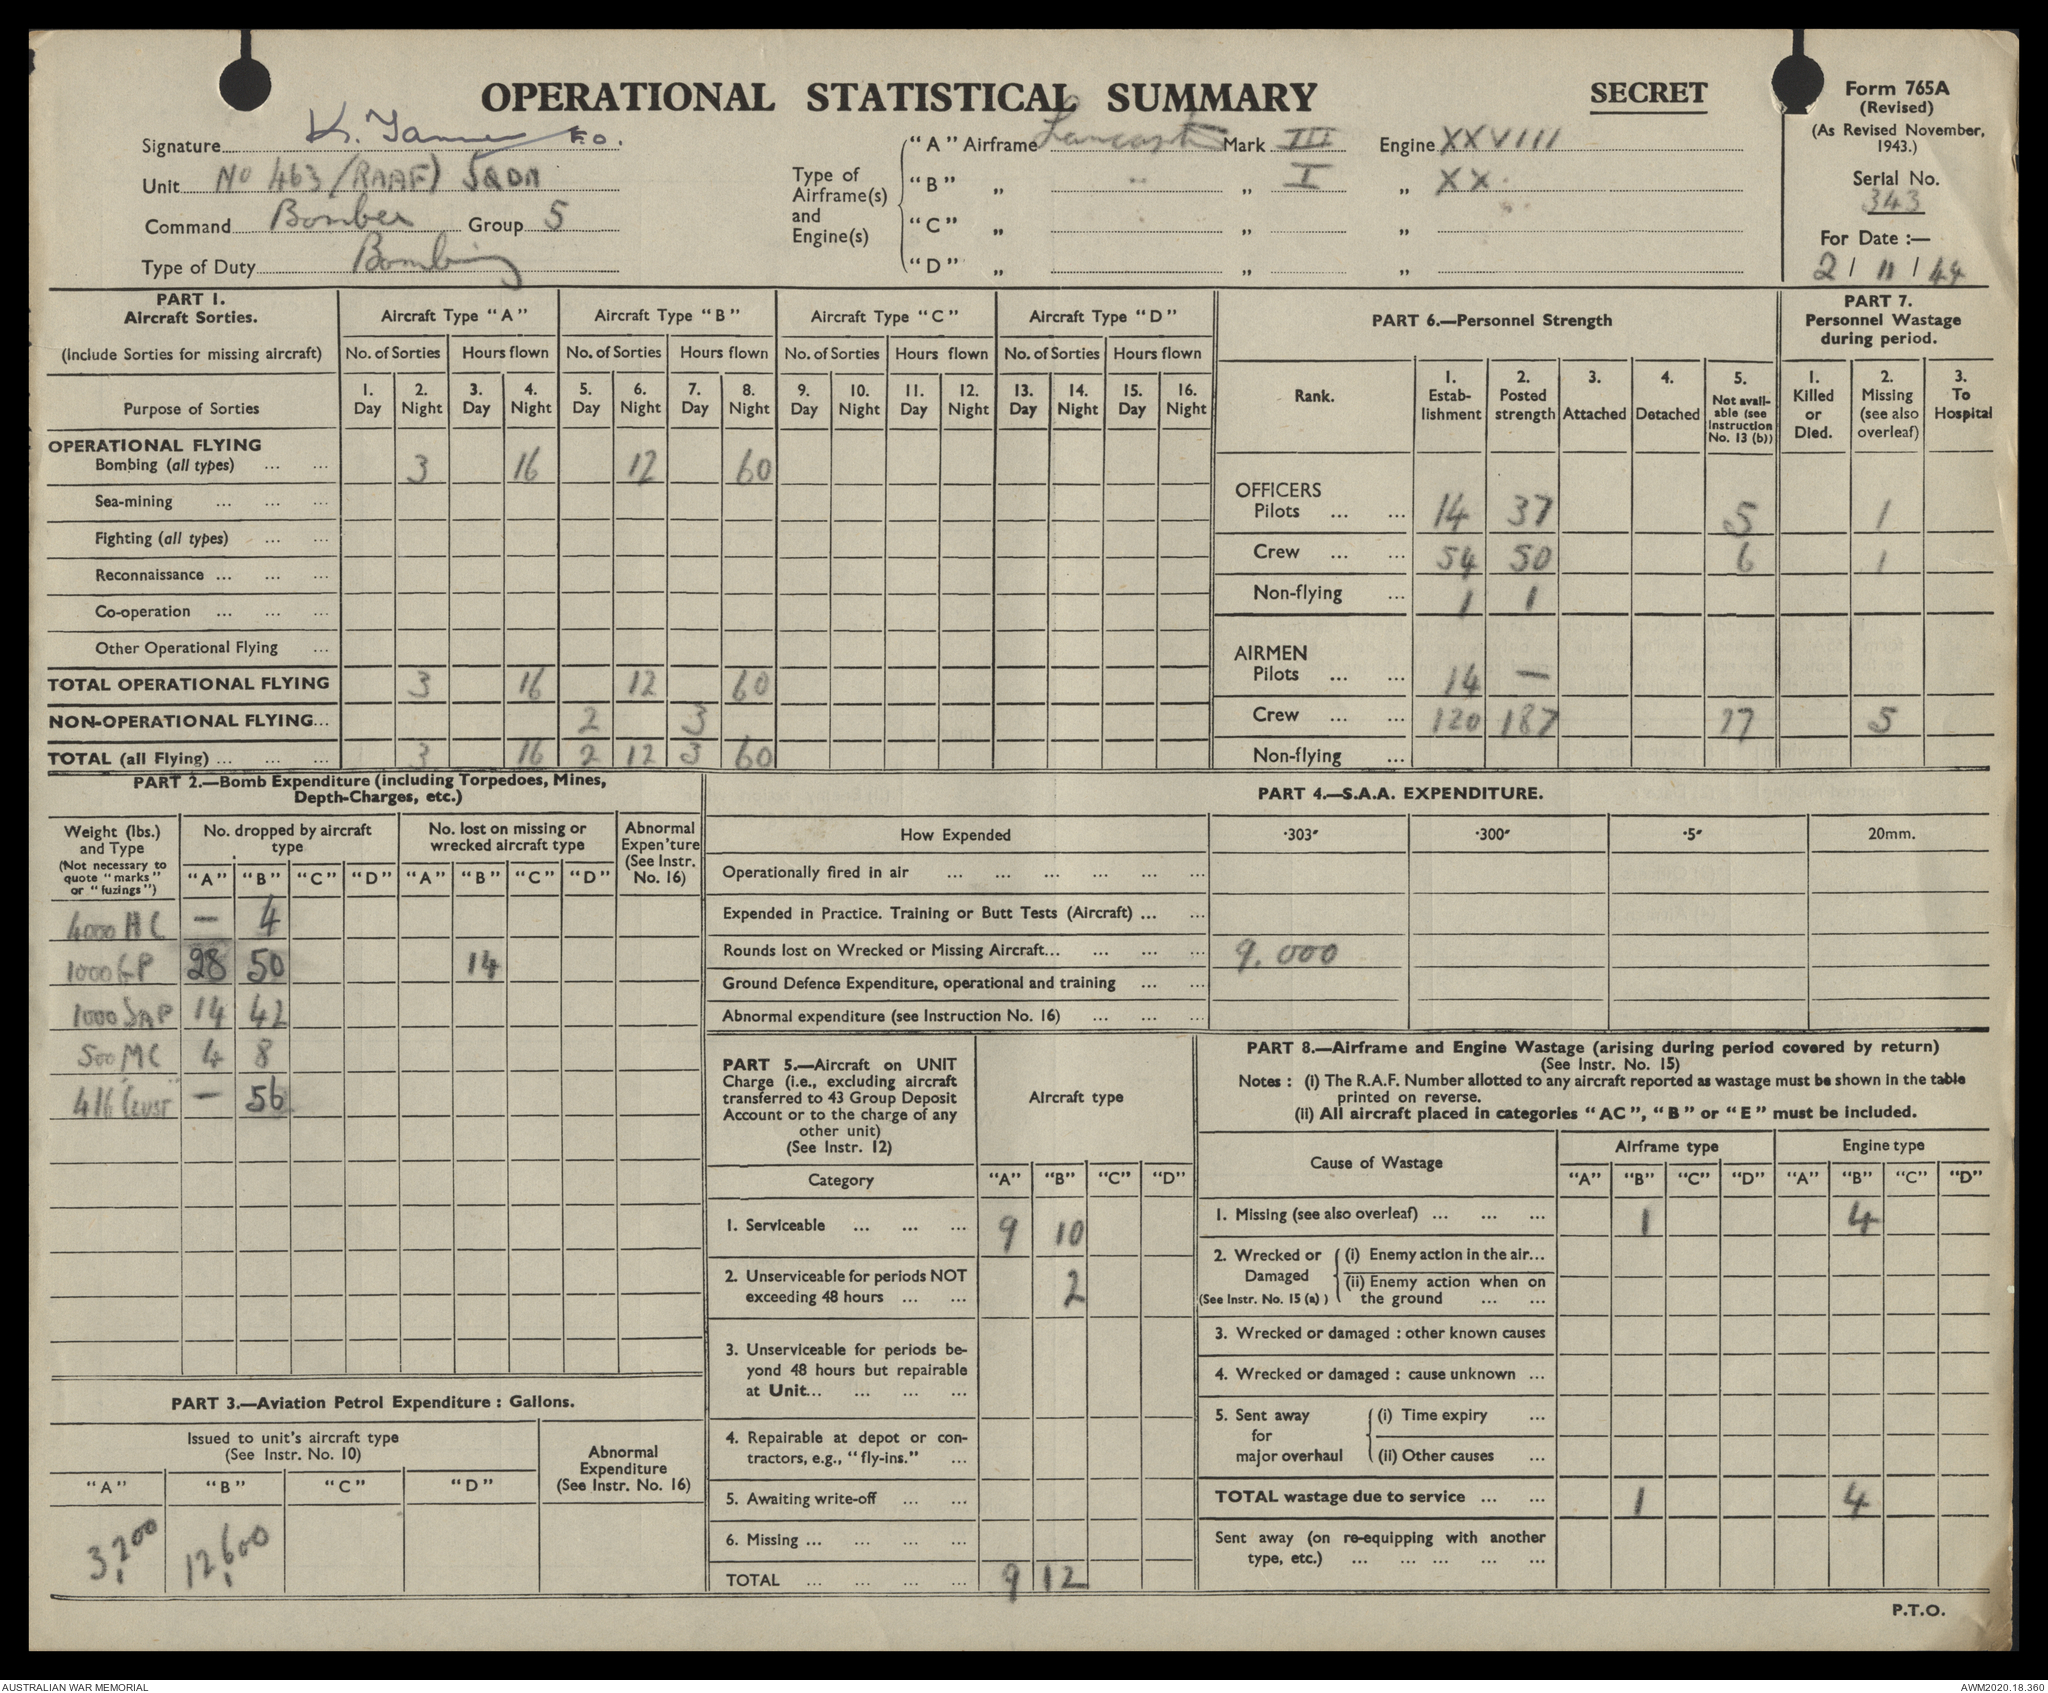 OPERATIONAL STATISTICAL SUMMARY
SECRET
Form 765A
(Revised)
(As Revised November, 1943.)
Serial No.
343
For Date :—
2 / 11 / 44
Signature K. F.O.
Unit No 463 (RAAF) SQDN
Command Bomber Group 5
Type of Duty Bombing
Type of Airframe(s) and Engine(s)
"A" Airframe Lancaster Mark III Engine XXVIII
"B" „ „ „ I „ XX
"C" „ „ „
"D" „ „ „
PART 1.
Aircraft Sorties.
(Include Sorties for missing aircraft)
Aircraft Type "A" Aircraft Type "B" Aircraft Type "C" Aircraft Type "D"
No. of Sorties Hours flown No. of Sorties Hours flown No. of Sorties Hours flown No. of Sorties Hours flown
1. 2. 3. 4. 5. 6. 7. 8. 9. 10. 11. 12. 13. 14. 15. 16.
Purpose of Sorties Day Night Day Night Day Night Day Night Day Night Day Night Day Night Day Night
OPERATIONAL FLYING
Bombing (all types) ... ... 3 16 12 60
Sea-mining ... ... ...
Fighting (all types) ... ...
Reconnaissance ... ... ...
Co-operation ... ... ...
Other Operational Flying ...
TOTAL OPERATIONAL FLYING 3 16 12 60
NON-OPERATIONAL FLYING... 2 3
TOTAL (all Flying) ... ... ... 3 16 2 12 3 60
PART 6.—Personnel Strength
Rank.
1. Estab-lishment
2. Posted strength
3. Attached
4. Detached
5. Not avail-able (see Instruction No. 13 (b))
PART 7.
Personnel Wastage during period.
1. Killed or Died.
2. Missing (see also overleaf)
3. To Hospital
OFFICERS
Pilots ... ... 14 37 5 1
Crew ... ... 54 50 6 1
Non-flying ... 1 1
AIRMEN
Pilots ... ... 14 —
Crew ... ... 120 187 17 5
Non-flying ...
PART 2.—Bomb Expenditure (including Torpedoes, Mines,
Depth-Charges, etc.)
Weight (lbs.) and Type
(Not necessary to quote "marks" or "fuzings")
No. dropped by aircraft type
No. lost on missing or wrecked aircraft type
Abnormal Expen'ture (See Instr. No. 16)
"A" "B" "C" "D" "A" "B" "C" "D"
4000 HC — 4
1000 GP 28 50 14
1000 SAP 14 42
500 MC 4 8
416 Clust — 56
PART 3.—Aviation Petrol Expenditure : Gallons.
Issued to unit's aircraft type
(See Instr. No. 10)
Abnormal Expenditure (See Instr. No. 16)
"A" "B" "C" "D"
3,200 12,600
PART 4.—S.A.A. EXPENDITURE.
How Expended ·303" ·300" ·5" 20mm.
Operationally fired in air ... ... ... ... ... ...
Expended in Practice. Training or Butt Tests (Aircraft) ... ...
Rounds lost on Wrecked or Missing Aircraft... ... ... ... 9.000
Ground Defence Expenditure, operational and training ... ...
Abnormal expenditure (see Instruction No. 16) ... ... ...
PART 5.—Aircraft on UNIT
Charge (i.e., excluding aircraft
transferred to 43 Group Deposit
Account or to the charge of any
other unit)
(See Instr. 12)
Aircraft type
Category "A" "B" "C" "D"
1. Serviceable ... ... ... 9 10
2. Unserviceable for periods NOT
exceeding 48 hours ... ... 2
3. Unserviceable for periods be-
yond 48 hours but repairable
at Unit... ... ... ...
4. Repairable at depot or con-
tractors, e.g., "fly-ins." ...
5. Awaiting write-off ... ...
6. Missing ... ... ... ...
TOTAL ... ... ... ... 9 12
PART 8.—Airframe and Engine Wastage (arising during period covered by return)
(See Instr. No. 15)
Notes : (i) The R.A.F. Number allotted to any aircraft reported as wastage must be shown in the table
printed on reverse.
(ii) All aircraft placed in categories "AC", "B" or "E" must be included.
Cause of Wastage Airframe type Engine type
"A" "B" "C" "D" "A" "B" "C" "D"
1. Missing (see also overleaf) ... ... ... 1 4
2. Wrecked or Damaged (See Instr. No. 15 (a) )
(i) Enemy action in the air...
(ii) Enemy action when on
the ground ... ...
3. Wrecked or damaged : other known causes
4. Wrecked or damaged : cause unknown ...
5. Sent away for major overhaul
(i) Time expiry ...
(ii) Other causes ...
TOTAL wastage due to service ... ... 1 4
Sent away (on re-equipping with another
type, etc.) ... ... ... ... ...
P.T.O.
AUSTRALIAN WAR MEMORIAL
AWM2020.18.360